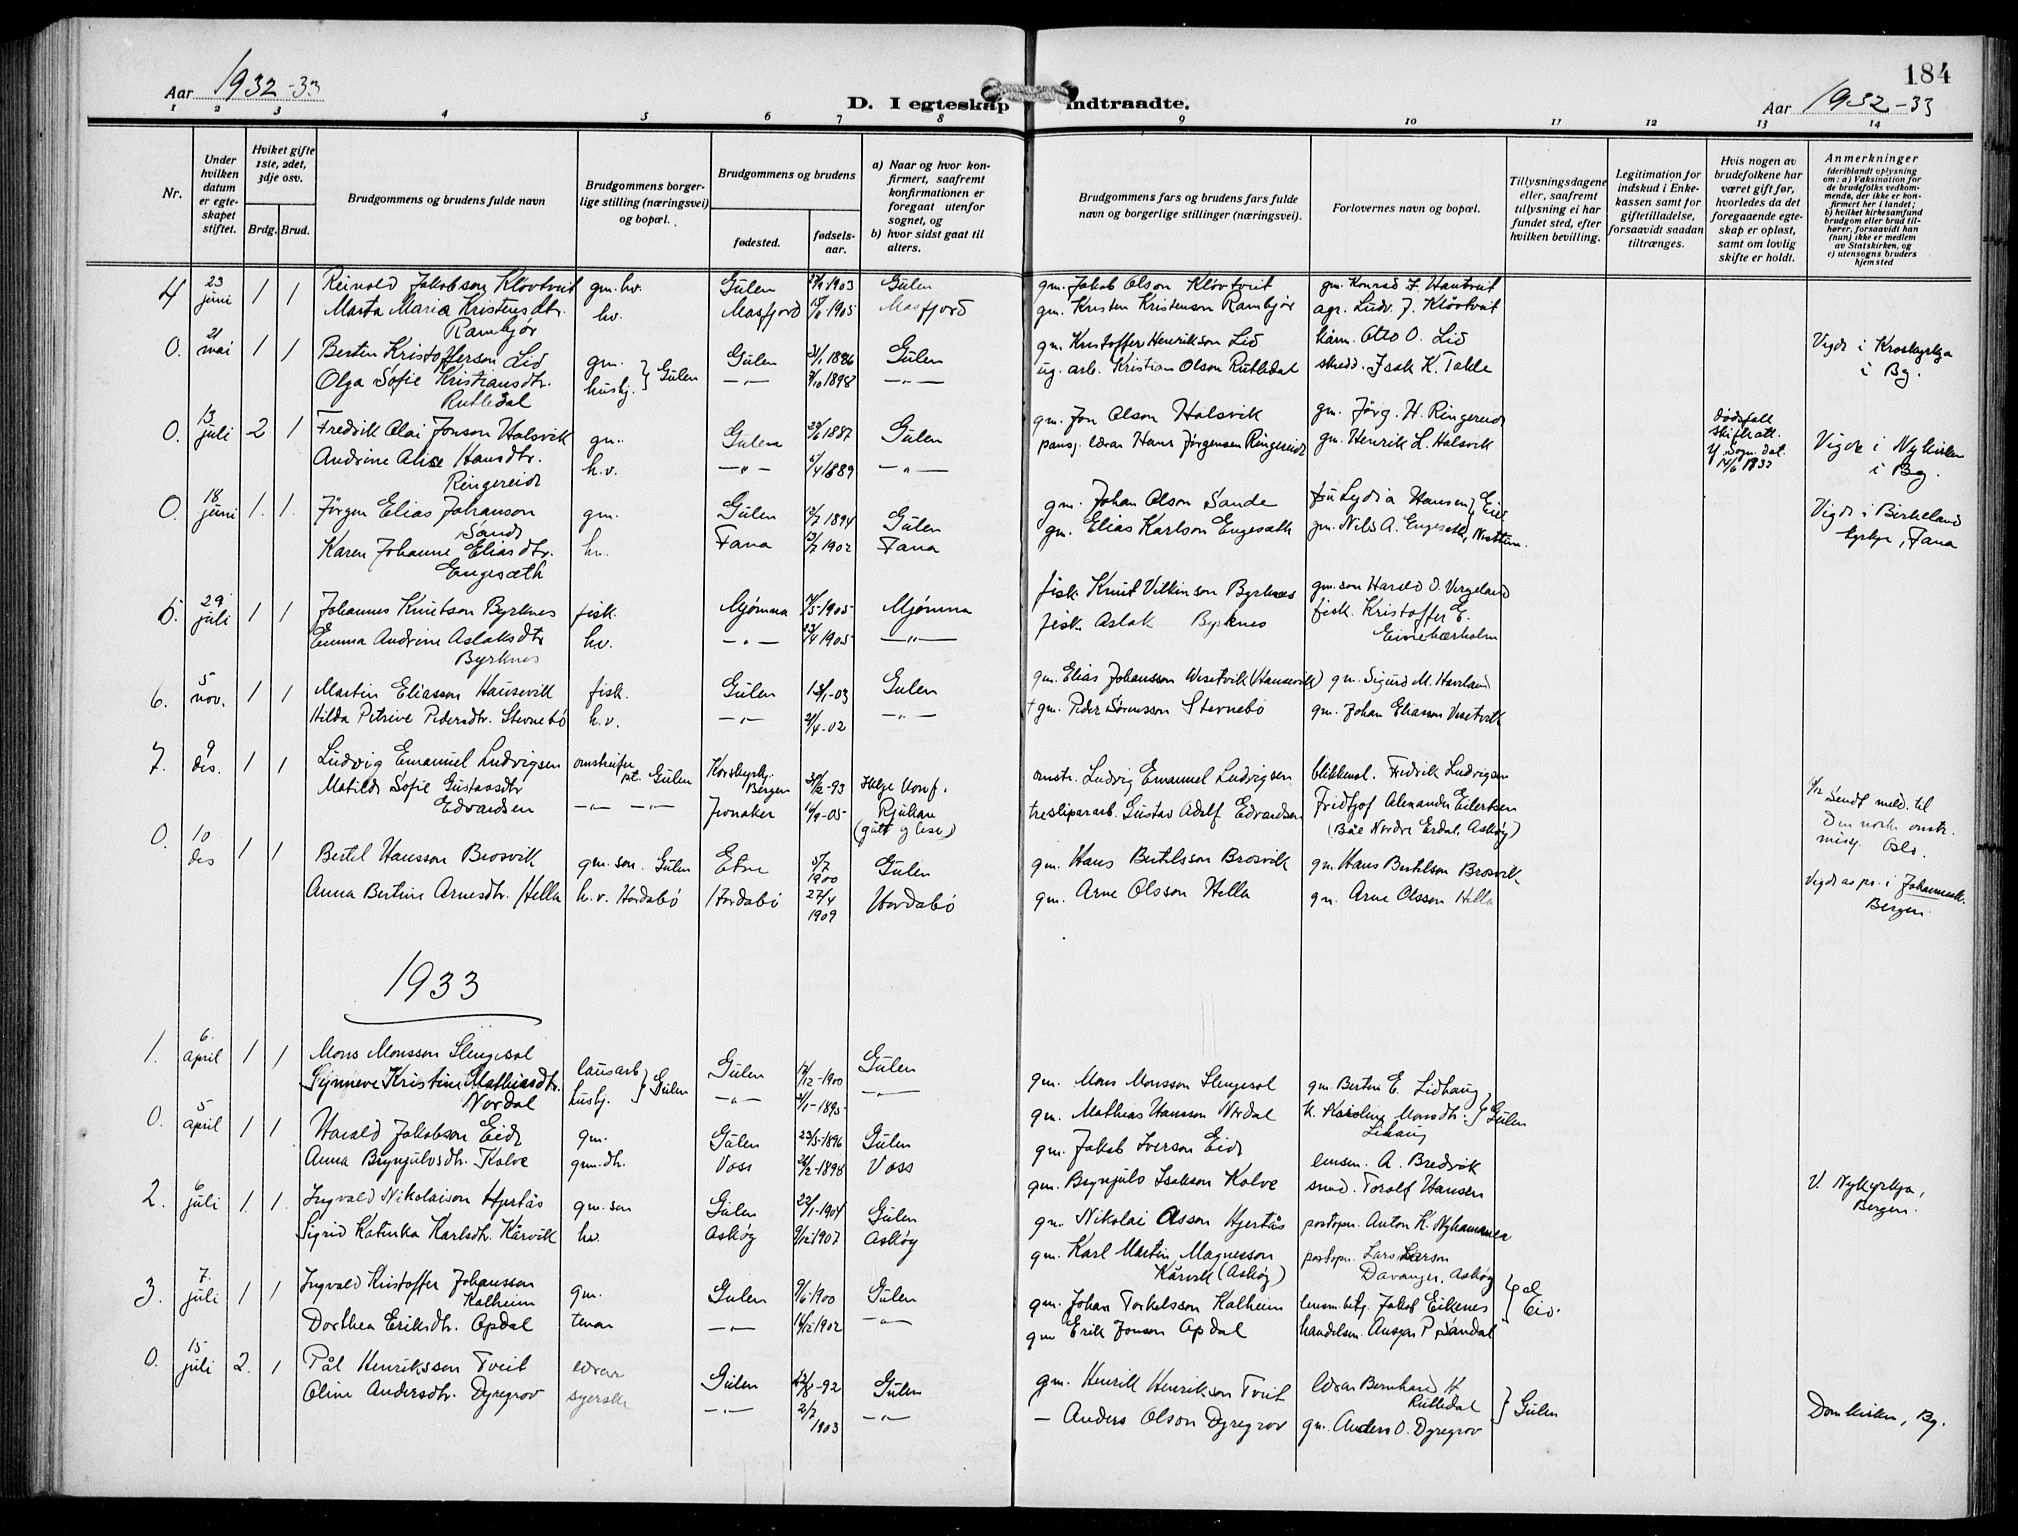 184
Aar 1932-33
D. I egteskap indtraadte.
Aar 1932-33
1 2 3 4 5 6 7 8 9 10 11 12 13 14
Nr.
Under hvilken datum er egteskapet stiftet.
Hviket gifte 1ste, 2det, 3dje osv.
Brdg. Brud.
Brudgommens og brudens fulde navn
Brudgommens borgerlige stilling (næringsvei) og bopæl.
Brudgommens og brudens
fødested.
fødselsaar.
a) Naar og hvor konfirmert, saafremt konfirmationen er foregaat utenfor sognet, og
b) hvor sidst gaat til alters.
Brudgommens fars og brudens fars fulde navn og borgerlige stillinger (næringsvei).
Forlovernes navn og bopæl.
Tillysningsdagene eller, saafremt tillysning ei har fundet sted, efter hvilken bevilling.
Legitimation for indskud i Enkekassen samt for giftetilladelse, forsaavidt saadan tiltrænges.
Hvis nogen av brudefolkene har været gift før, hvorledes da det foregaaende egteskap er opløst, samt om lovlig skifte er holdt.
Anmerkninger (deriblandt oplysning om: a) Vaksination for de brudefolks vedkommende, der ikke er konfirmert her i landet; b) hvilket kirkesamfund brudgom eller brud tilhører, forsaavidt han (hun) ikke er medlem av Statskirken, og c) utensogns bruders hjemsted
4 23 juni 1 1 Reinold Jakobson Kløvtveit gm. hv. Gulen 1903 Gulen gm. Jakob Olson Kløvtveit gm. Konrad
Marta Maria Kristensdtr. Rambjør hv. Masfjord 1905 Masfjord gm. Kristen Kristenson Rambjør agr. Ludv. J. Kløvtveit
0. 21 mai 1 1 Bertin Kristofferson Lid gm. Gulen 3/1 1886 Gulen gm. Kristoffer Henrikson Lid Otto O. Lid Vigde i Kroskyrkja i Bg.
Olga Sofie Kristiansdtr. Rutledal husbj. —"— 1898 —"— ug. arb. Kristian Olson Rutledal skredd. Isak K. Takle
0. 13 juli 2 1 Fredrik Olai Jonson Halsvik gm. Gulen 1887 Gulen gm. Jon Olson Halsvik gm. Jørg. H. Ringereide dødsfall skifteatt. 14/6 1932 Vigde i Nykirken i Bg.
Andrine Alise Hansdtr. Ringereide h.v. —"— 1889 —"— pens. lærar Hans Jørgensen Ringereide gm. Henrik L. Halsvik
0. 18 juni 1. 1. Jørgen Elias Johanson Sande gm. Gulen 1894 Gulen gm. Johan Olson Sande fru Lydia Hansen, Eid Vigde i Birkeland kyrkje, Fana
Karen Johanne Eliasdtr. Engesæth hv. Fana 1902 Fana gm. Elias Karlson Engesæth gm. Nils A. Engeseth, Nesttun.
5. 29 juli 1 1 Johannes Knutson Byrknes fisk. Mjømna 1905 Mjømna fisk. Knut Vilkinson Byrknes gm. son Harald O. Vergeland
Emma Andrine Aslaksdtr Byrknes hv. —"— 1905 —"— fisk. Aslak Byrknes fisk. Kristoffer E.
6. 5 nov. 1 1 Martin Eliasson Hausevik fisk. Gulen 13/1-03 Gulen gm. Elias Johansson Wesetvik (Hausevik) gm. Sigurd M. Haveland
Hilda Petrine Pedersdtr. Stevnebø h.v. —"— 2/4-02 —"— † gm. Peder Sørensson Stevnebø gm. Johan Eliasson Vesetvik
7. 9 des. 1 1 Ludvig Emanuel Ludvigsen omstreifer pt. Gulen Korskyrkj. Bergen -93 Helge Konf. omstr. Ludvig Emanuel Ludvigsen blikkensl. Fredrik Ludvigsen Sendt meld. til Den norske omstr. misj. Oslo.
Matilde Sofie Gustavsdtr Edvardsen —"— —"— Jevnaker -05 Rjukan tresliperarb. Gustav Adolf Edvardsen Fridtjof Alexander Eilertsen (Båe Nordre Erdal, Askøy)
0. 10 des 1 1 Bertel Hansson Brosvik gm. son. Gulen Etne 5/7 1900 Gulen gm. Hans Bertilsson Brosvik gm. Hans Bertilson Brosvik Vigde i Johannesk. Bergen.
Anna Bertine Arnesdtr. Hella h.v. Hordabø Hordabø 27/4 1909 Hordabø gm. Arne Olsson Hella gm. Arne Olsson Hella
1933
1. 6. april 1 1 Mons Monsson Slengesol lausarb Gulen 1900 Gulen gm. Mons Monsson Slengesol gm. Bertin E. Lidhaug
Synneve Kristine Mathiasdtr. Nordal husbj. —"— 1895 —"— gm. Mathias Hansson Nordal k. Karoline Monsdtr. Lihaug Gulen
0. 5 april 1 1 Harald Jakobson Eide gm. Gulen 23/5-1896 Gulen gm. Jakob Iverson Eide lensm. A. Bredvik
Anna Brynjulvsdtr. Kolve gm.dtr. Voss 1898 Voss gm. Brynjulv Isakson Kolve smed. Toralf Hansen V. Nykyrkja, Bergen.
2. 6 juli 1. 1. Ingvald Nikolaison Hjertås gm. son Gulen 22/1-1904 Gulen gm. Nikolai Olsson Hjertås postopn. Anton K. Nyhammer
Sigrid Katinka Karlsdtr. Kårvik hv. Askøy 9/12 1907 Askøy gm. Karl Martin Magnesson Kårvik (Askøy) postopn. Lars Larson Davanger, Askøy
3. 7. juli 1 1 Ingvald Kristoffer Johansson Kalheim gm. Gulen 9/6-1900 Gulen gm. Johan Torkelsson Kalheim lensm. betj. Jakob Eikenes
Dorthea Eriksdtr. Opdal tenar —"— 14/12 1902 —"— gm Erik Jonson Opdal handelsm. Ansgar P. Sandal Eid.
0. 15 juli 2. 1 Pål Henriksson Tveit lærar Gulen -92 Gulen gm. Henrik Henrikson Tveit lærar Bernhard H Rutledal Domkirken, Bg.
Oline Andersdtr. Dyregrov syerske —"— 2/7 1903 —"— — Anders Olson Dyregrov gm. Anders O. Dyregrov Gulen